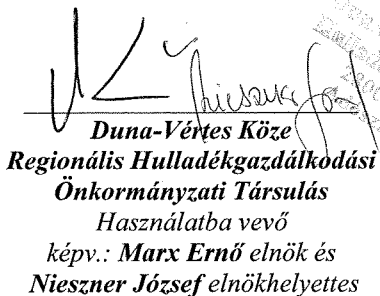 Duna-Vértes Köze
Regionális Hulladékgazdálkodási
Önkormányzati Társulás
Használatba vevő
képv.: Marx Ernő elnök és
Nieszner József elnökhelyettes